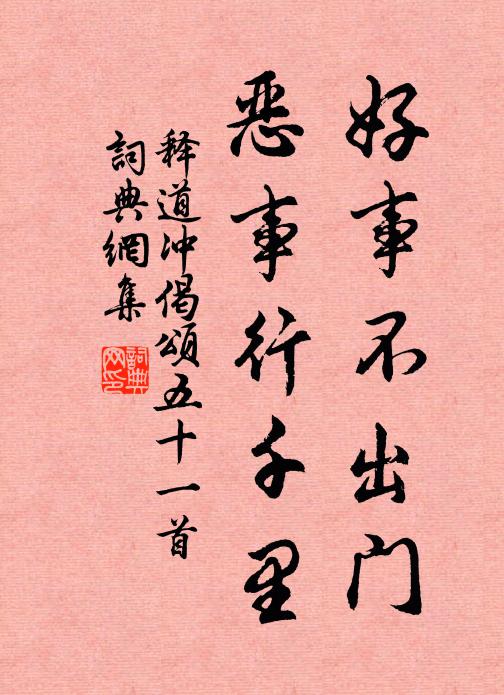 好事不出门
恶事行千里
释道冲偈颂五十一首
詞典網集
詞典网印